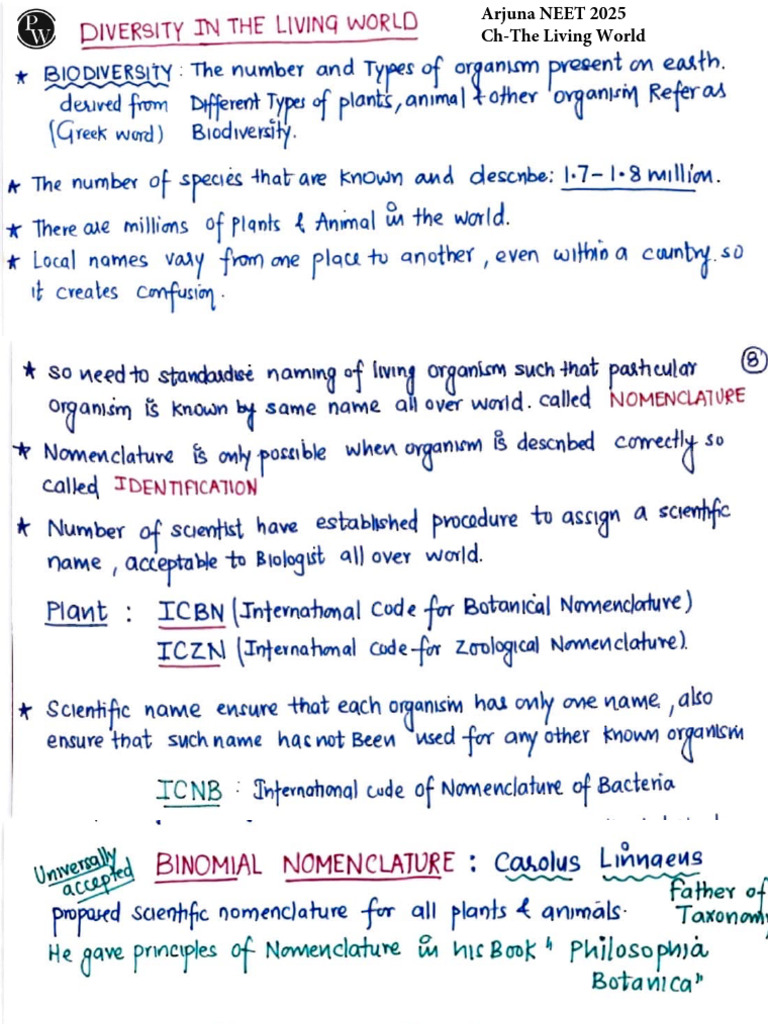 PW
Arjuna NEET 2025
Ch-The Living World
DIVERSITY IN THE LIVING WORLD
★ BIODIVERSITY : The number and Types of organism present on earth.
derived from Different Types of plants, animal & other organism Refer as
(Greek word) Biodiversity.
★ The number of species that are known and describe: 1.7-1.8 million.
★ There are millions of plants & Animal in the world.
★ Local names vary from one place to another, even within a country. so
it creates confusion.
8
★ so need to standardise naming of living organism such that particular
organism is known by same name all over world. called NOMENCLATURE
★ Nomenclature is only possible when organism is described correctly so
called IDENTIFICATION
★ Number of scientist have established procedure to assign a scientific
name, acceptable to Biologist all over world.
Plant : ICBN (International Code for Botanical Nomenclature)
ICZN (International code for Zoological Nomenclature).
★ Scientific name ensure that each organism has only one name, also
ensure that such name has not Been used for any other known organism
ICNB : International code of Nomenclature of Bacteria
Universally
accepted
BINOMIAL NOMENCLATURE : Carolus Linnaeus
Father of
Taxonomy
proposed scientific nomenclature for all plants & animals.
He gave principles of Nomenclature in his Book " Philosophia
Botanica"